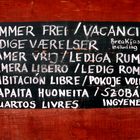 MMER FREI / VACANCI
DIGE VÆRELSER Breakfast Including
AMER VRIJ / LEDIGA RUM
AMERA LIBERO / LEDIG ROM
ABITACIÓN LIBRE / POKOJE WOL
APAITA HUONEITA / SZOBÁ
UARTOS LIVRES INGYEN